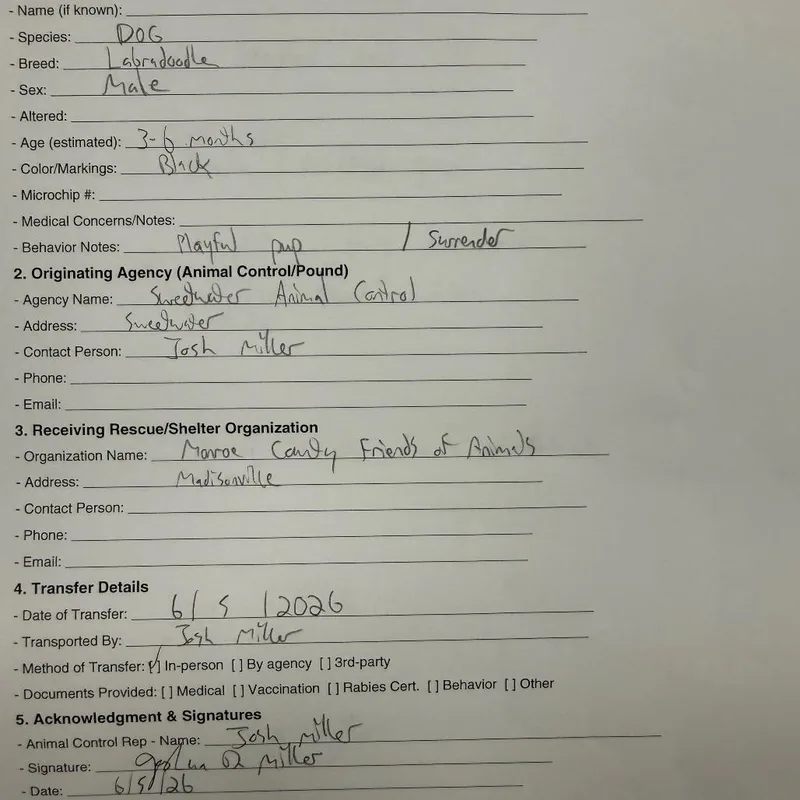 - Name (if known):
- Species: DOG
- Breed: Labradoodle
- Sex: Male
- Altered:
- Age (estimated): 3-6 months
- Color/Markings: Black
- Microchip #:
- Medical Concerns/Notes:
- Behavior Notes: Playful pup / Surrender
2. Originating Agency (Animal Control/Pound)
- Agency Name: Sweetwater Animal Control
- Address: Sweetwater
- Contact Person: Josh Miller
- Phone:
- Email:
3. Receiving Rescue/Shelter Organization
- Organization Name: Monroe County Friends of Animals
- Address: Madisonville
- Contact Person:
- Phone:
- Email:
4. Transfer Details
- Date of Transfer: 6/5/2026
- Transported By: Josh Miller
- Method of Transfer: [✓] In-person [ ] By agency [ ] 3rd-party
- Documents Provided: [ ] Medical [ ] Vaccination [ ] Rabies Cert. [ ] Behavior [ ] Other
5. Acknowledgment & Signatures
- Animal Control Rep - Name: Josh Miller
- Signature: Miller
- Date: 6/5/26